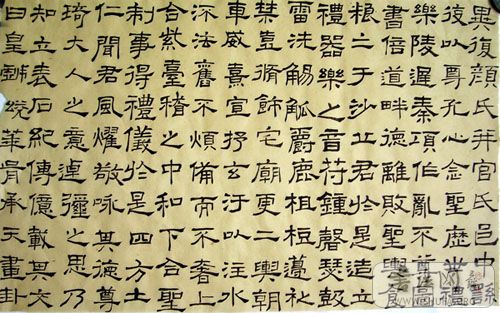 異復顏氏并官氏邑中繇
復以尊孔心念聖歷世禮
樂陵遲秦項作亂不尊圖
書倍道畔德離敗聖輿食
根亡于沙丘君於是造立
禮器樂之音苻鍾磬瑟鼓
雷洗觴觚爵鹿柤梪籩柉
禁壺脩飾宅廟更二輿朝
車威熹宣抒玄汙以注水
流法舊不煩備而不奢上
合紫臺稽之中和下合聖
制事得禮儀於是四方土
仁聞君風燿敬咏其德尊
琦大人之意逴彌之思乃
知立表石紀傳億載其文
曰皇戲統華胥承天畫卦